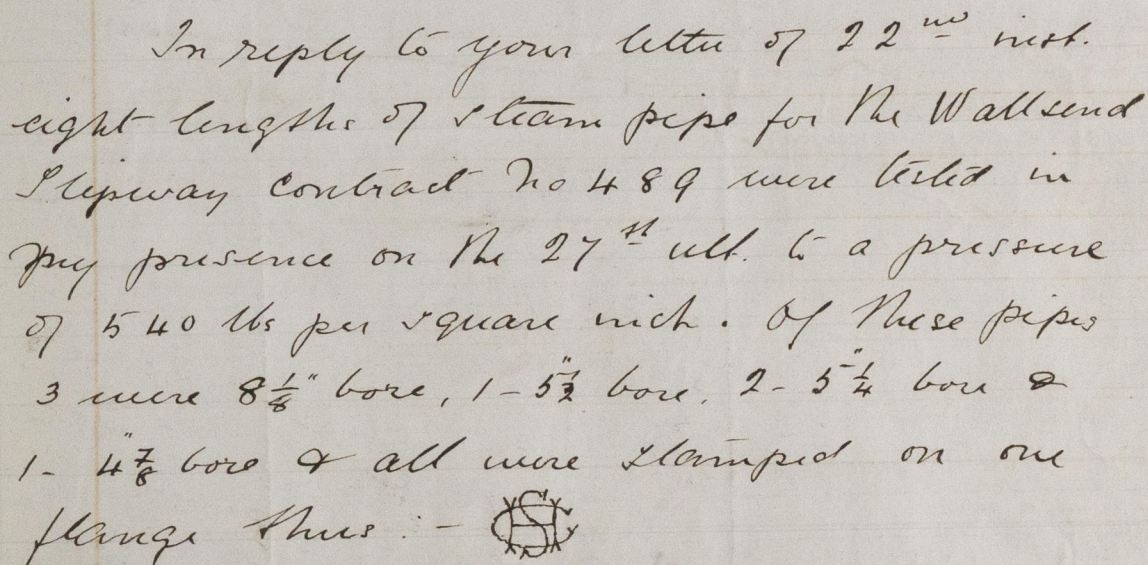 In reply to your letter of 22nd inst.
eight lengths of steam pipe for the Wallsend
Slipway contract No 489 were tested in
my presence on the 27st ult. to a pressure
of 540 lbs per square inch. Of these pipes
3 were 8 1/8" bore, 1 - 5 1/2" bore, 2 - 5 1/4" bore &
1 - 4 7/8" bore & all were stamped on one
flange thus :-